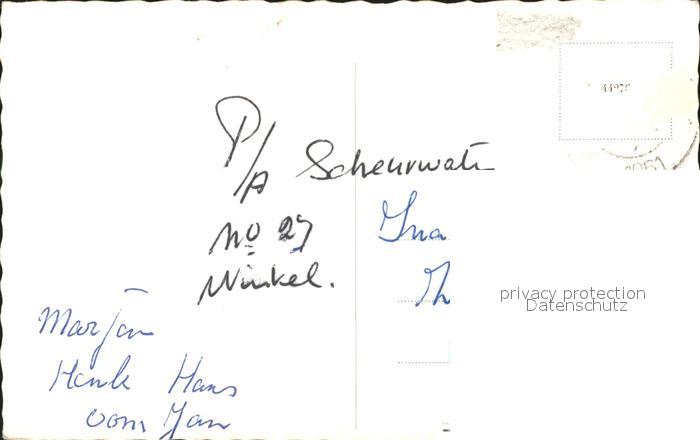 P/A Scheurwat
No 27
Winkel.
Ina
Marjan
Henk Hans
oom Jan
4497
privacy protection
Datenschutz